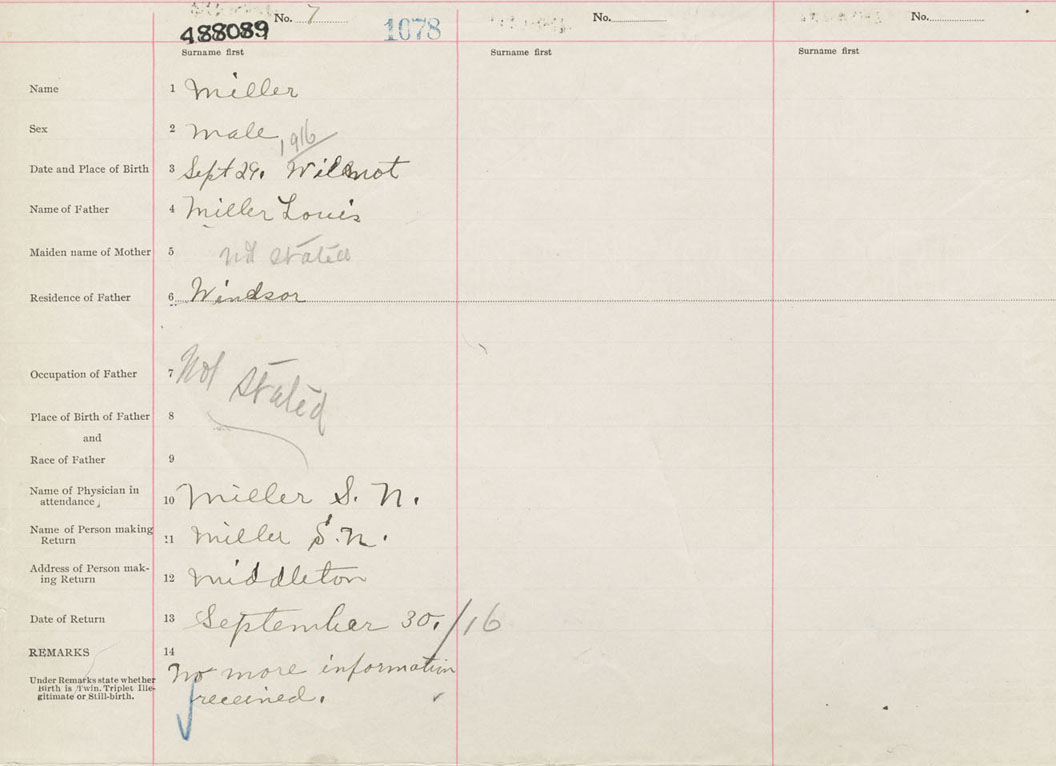 No. 7
488089
1078
No.
No.
Surname first
Surname first
Surname first
Name 1 Miller
Sex 2 Male
1916
Date and Place of Birth 3 Sept 29. Wilmot
Name of Father 4 Miller Louis
Maiden name of Mother 5 Not stated
Residence of Father 6 Windsor
Occupation of Father 7 Not stated
Place of Birth of Father 8
and
Race of Father 9
Name of Physician in
attendance 10 Miller S. N.
Name of Person making
Return 11 Miller S. N.
Address of Person mak-
ing Return 12 Middleton
Date of Return 13 September 30, /16
REMARKS 14
No more information
received.
Under Remarks state whether
Birth is Twin, Triplet Ille-
gitimate or Still-birth.